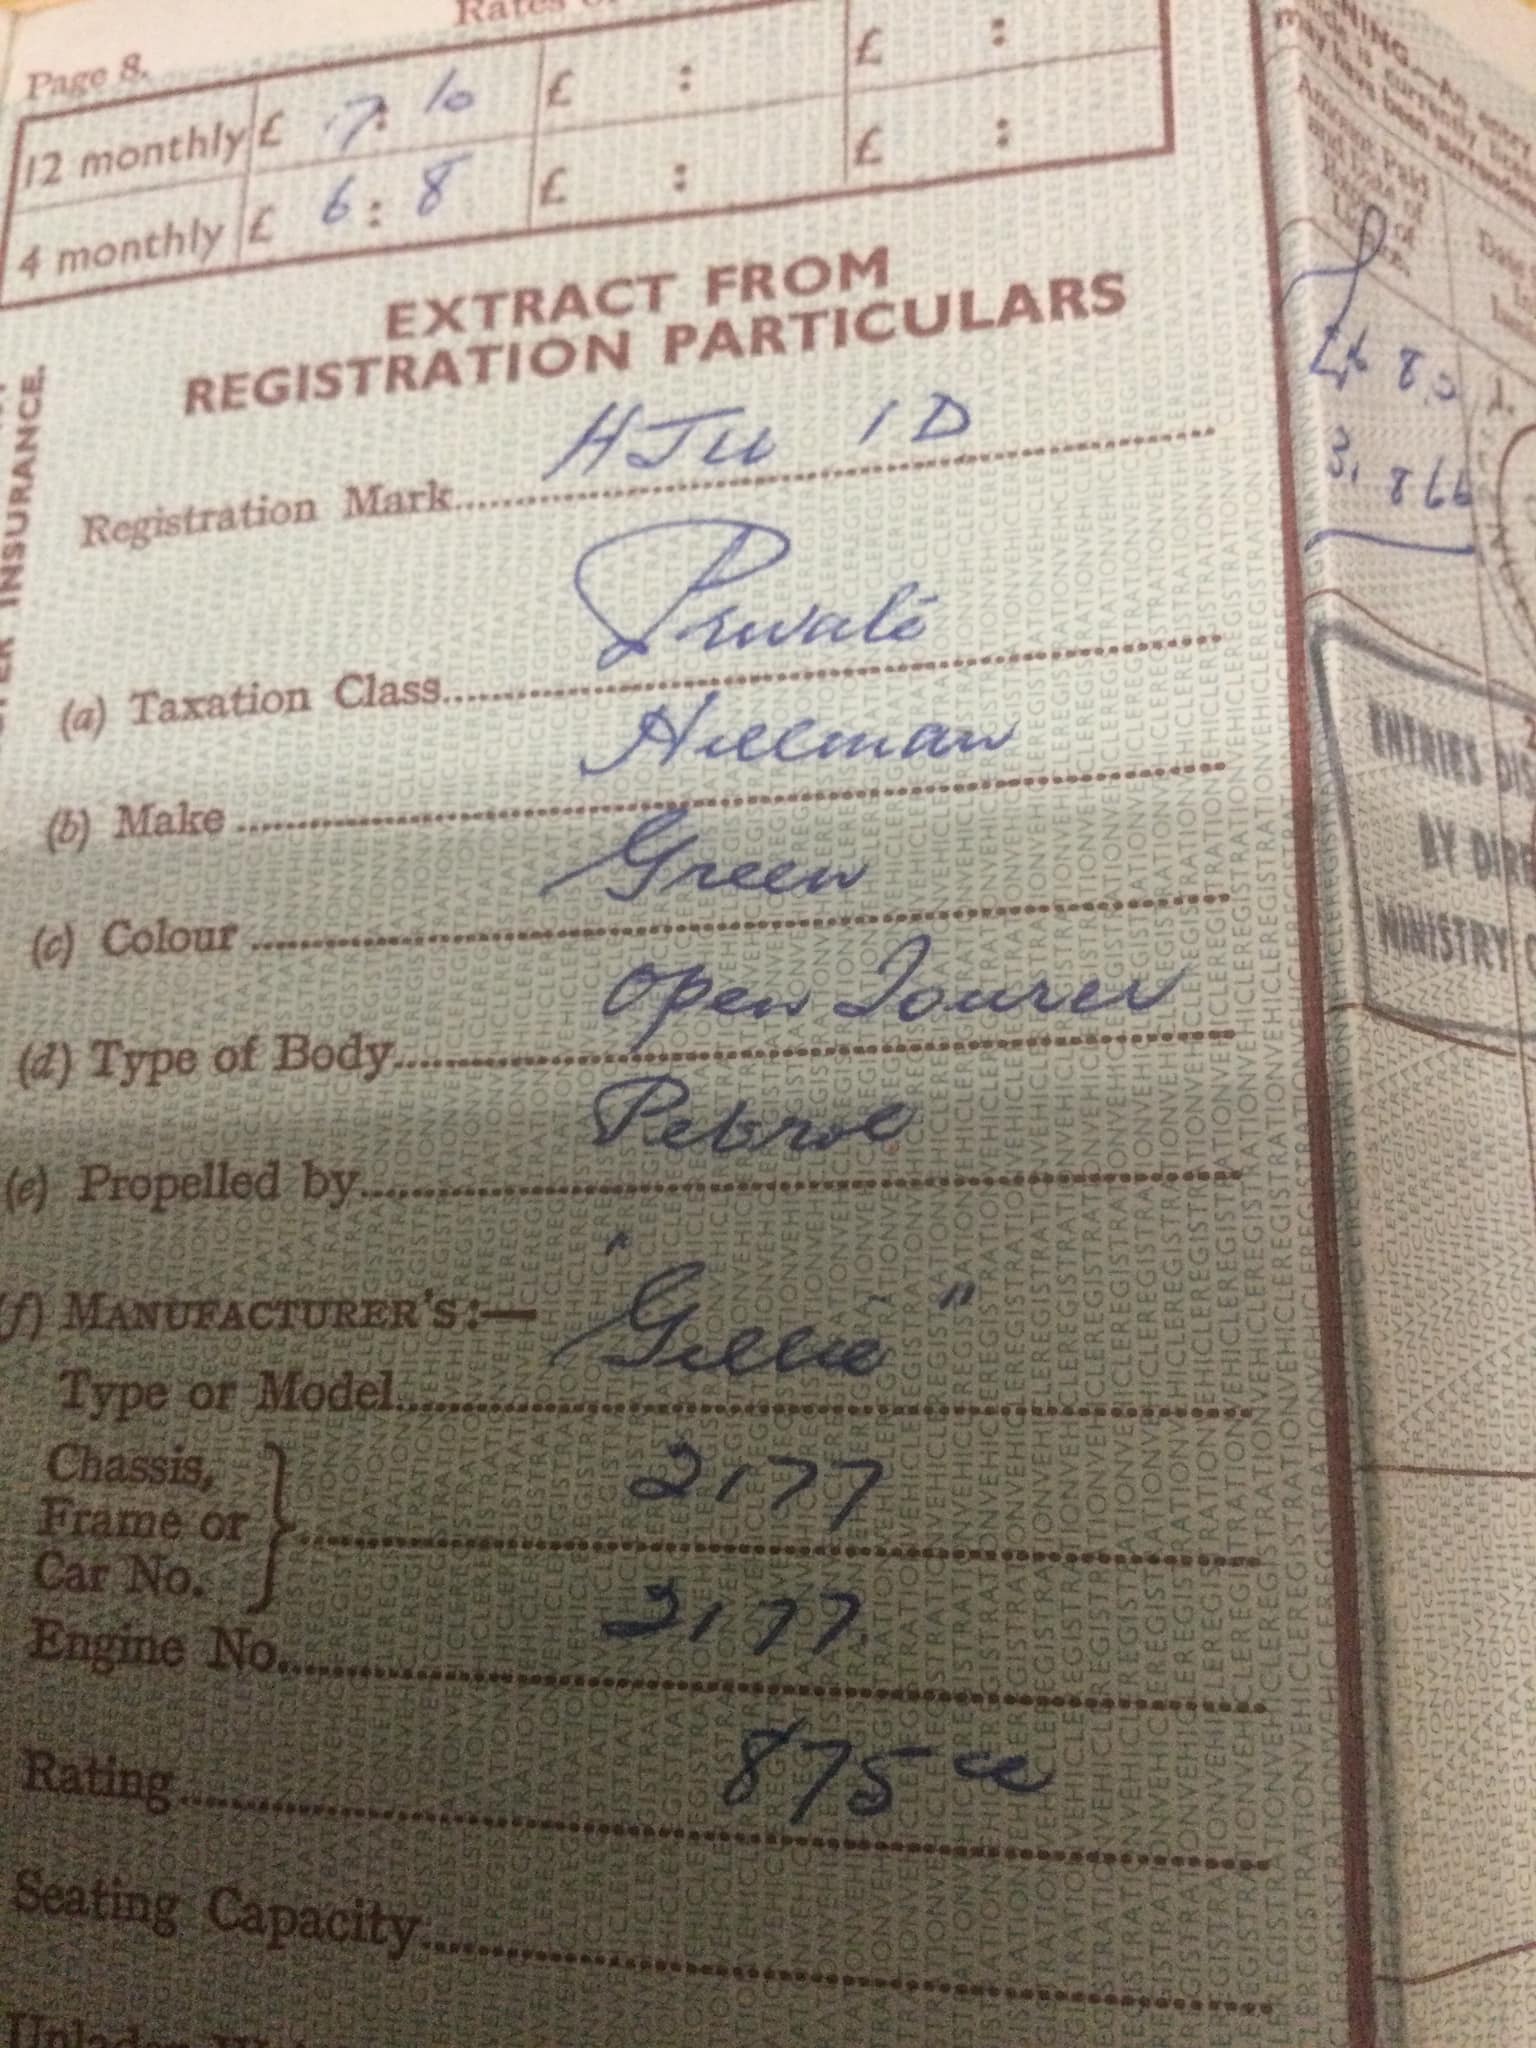 Rates
Page 8.
12 monthly £ 7: 10 £ : £ :
4 monthly £ 6: 8 £ : £ :
EXTRACT FROM
REGISTRATION PARTICULARS
Registration Mark HJU 1D
(a) Taxation Class Private
(b) Make Hillman
(c) Colour Green
(d) Type of Body Open Tourer
(e) Propelled by Petrol
(f) MANUFACTURER'S:—
Type or Model "Gillie"
Chassis,
Frame or
Car No. 2177
Engine No. 2177.
Rating 875 cc
Seating Capacity
INSURANCE.
NING.—An entry
is currently
may have been
Amount Paid
and Date of
Date
3. 8 66
ENTRIES
BY
MINISTRY